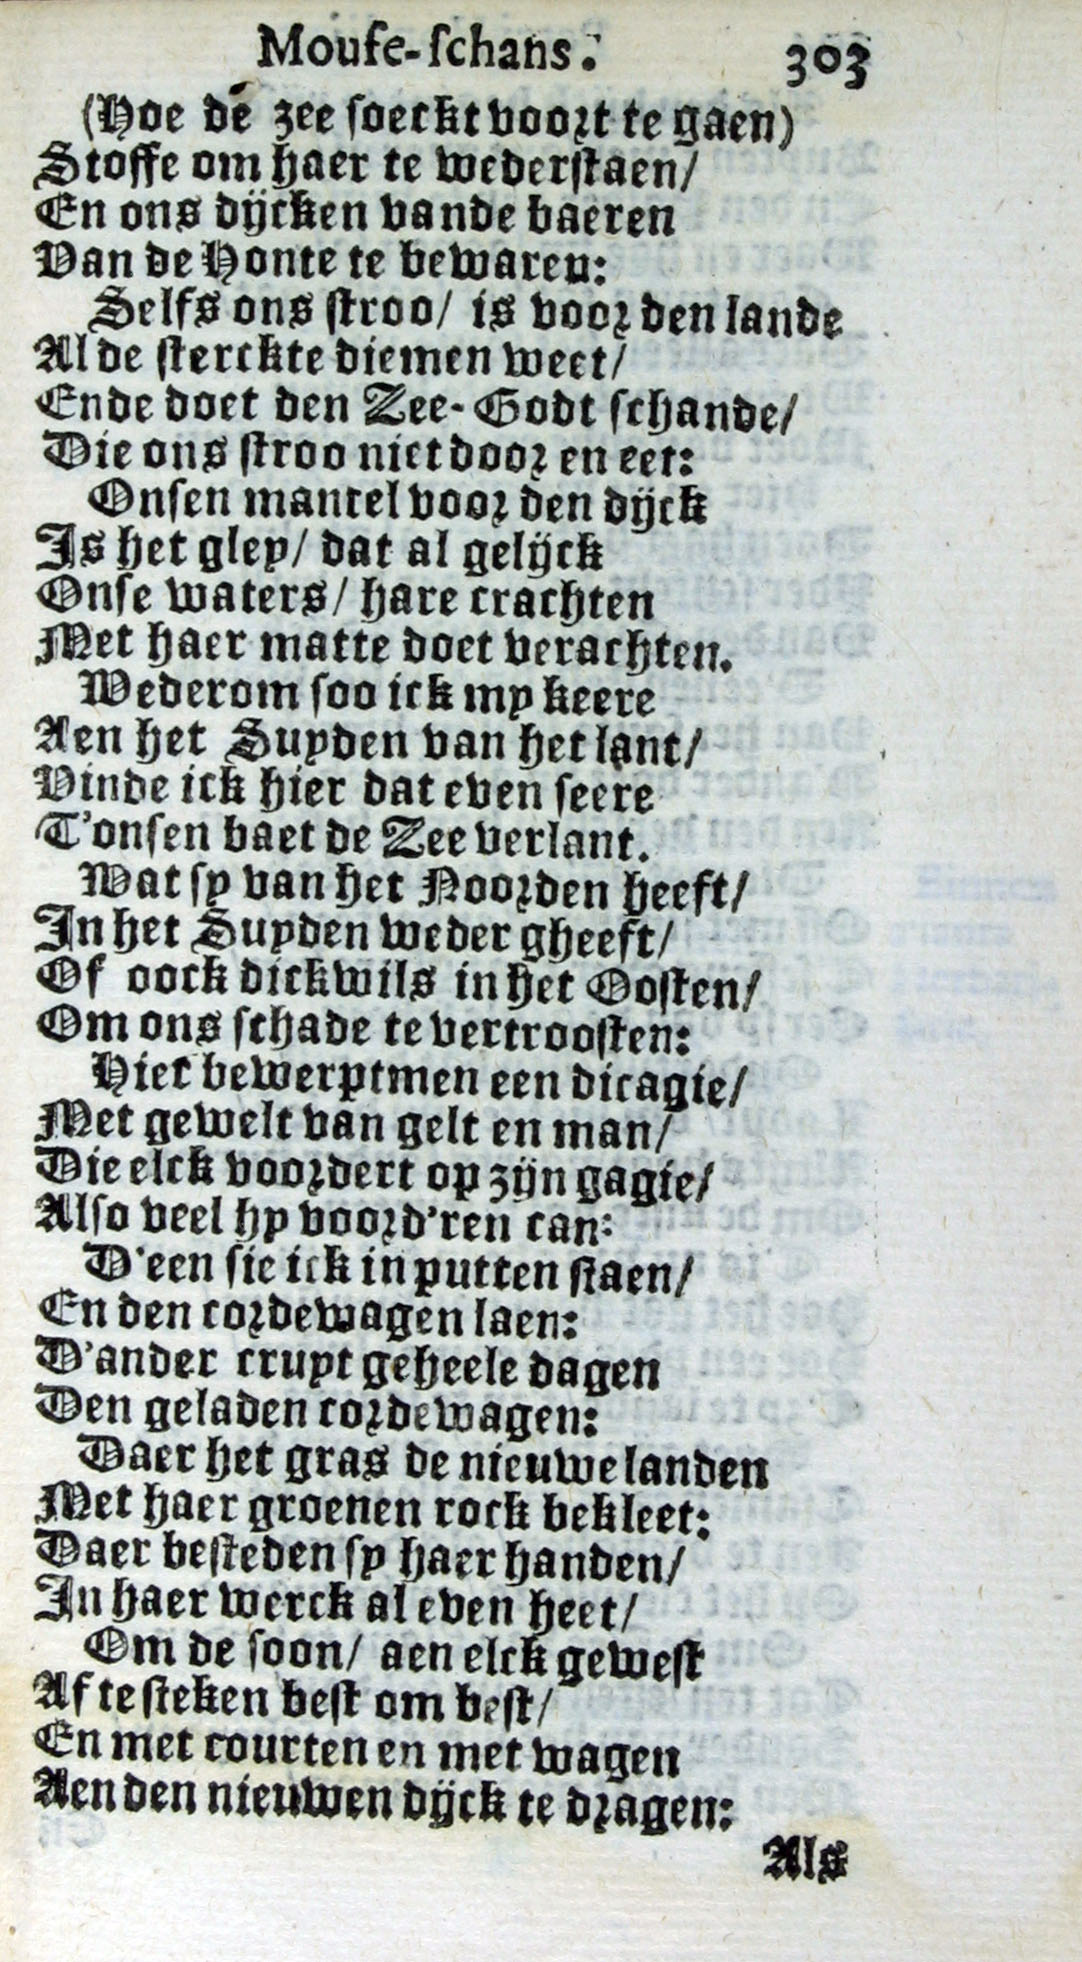 Moufe-ſchans. 303
(Hoe de zee ſoeckt voort te gaen)
Stoffe om haer te wederſtaen/
En ons dijcken vande baeren
Van de Honte te bewaren:
Selfs ons ſtroo/ is voor den lande
Al de ſterckte diemen weet/
Ende doet den Zee-Godt ſchande/
Die ons ſtroo niet door en eet:
Onſen mantel voor den dijck
Is het gley/ dat al gelijck
Onſe waters/ hare crachten
Met haer matte doet verachten.
Wederom ſoo ick my keere
Aen het Suyden van het lant/
Vinde ick hier dat even ſeere
T'onſen baet de Zee verlant.
Wat ſy van het Noorden heeft/
In het Suyden weder gheeft/
Of oock dickwils in het Ooſten/
Om ons ſchade te vertrooſten:
Hier bewerptmen een dicagie/
Met gewelt van gelt en man/
Die elck voordert op zijn gagie/
Alſo veel hy voord'ren can:
D'een ſie ick in putten ſtaen/
En den cordewagen laen:
D'ander cruyt geheele dagen
Den geladen cordewagen:
Daer het gras de nieuwe landen
Met haer groenen rock bekleet:
Daer beſteden ſy haer handen/
In haer werck al even heet/
Om de ſoon/ aen elck geweſt
Af te ſteken beſt om beſt/
En met courten en met wagen
Aen den nieuwen dijck te dragen:
Als